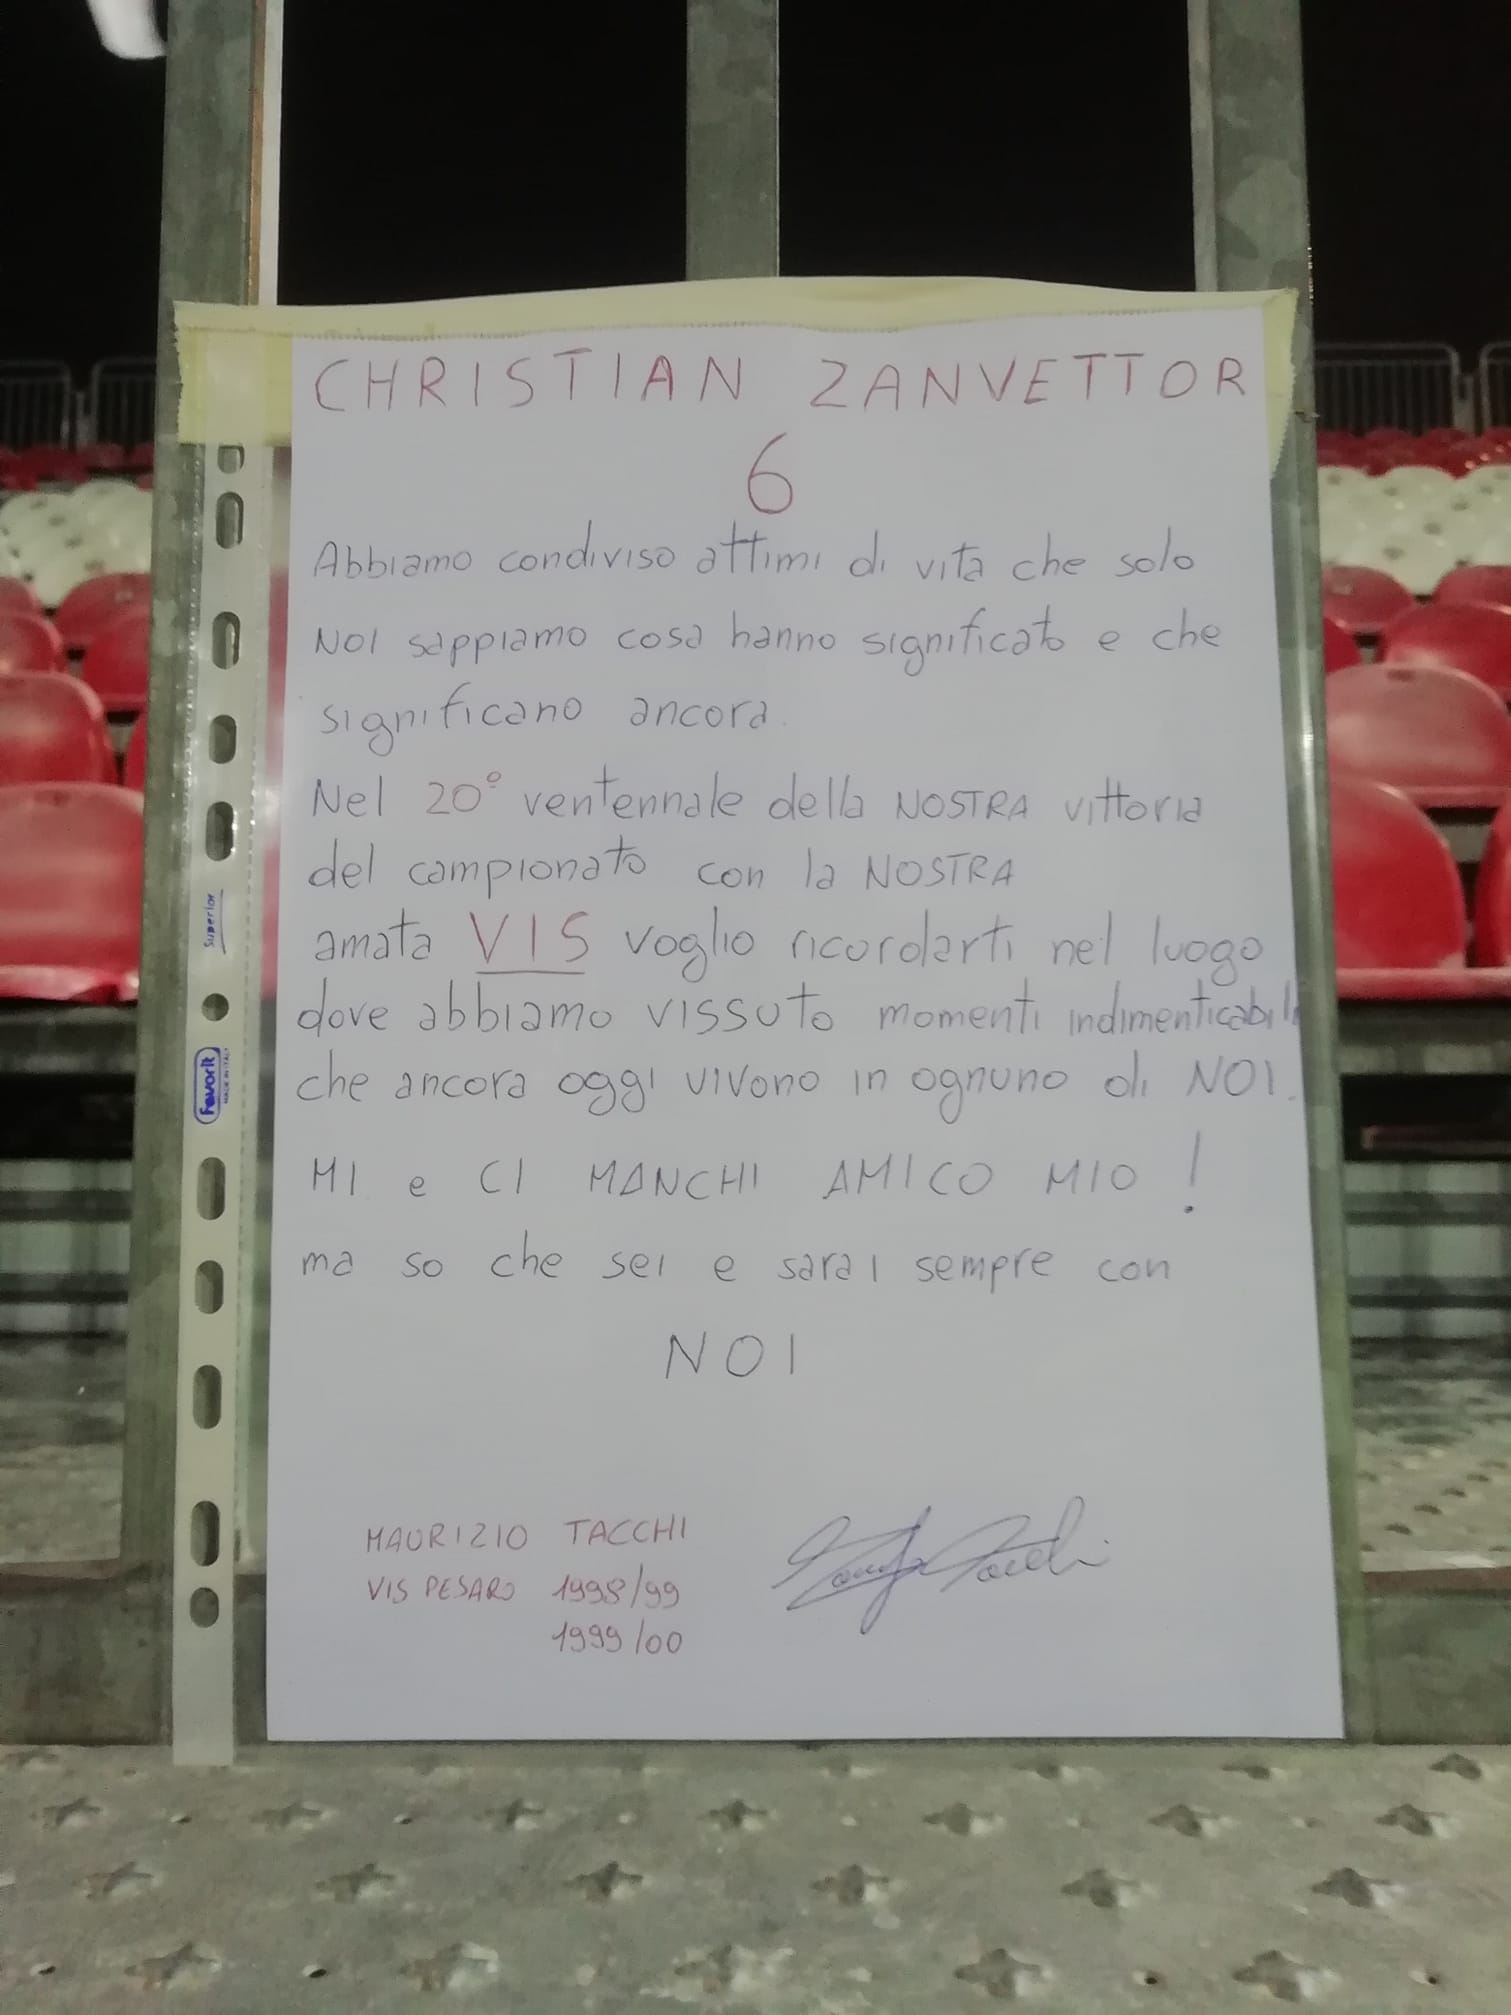 CHRISTIAN ZANVETTOR
6
Abbiamo condiviso attimi di vita che solo
NOI sappiamo cosa hanno significato e che
significano ancora.
Nel 20° ventennale della NOSTRA vittoria
del campionato con la NOSTRA
amata VIS voglio ricordarti nel luogo
dove abbiamo vissuto momenti indimenticabili
che ancora oggi vivono in ognuno di NOI.
MI e CI MANCHI AMICO MIO!
ma so che sei e sarai sempre con
NOI
MAURIZIO TACCHI
VIS PESARO 1998/99
1999/00
Superior
Favorit
MADE IN ITALY